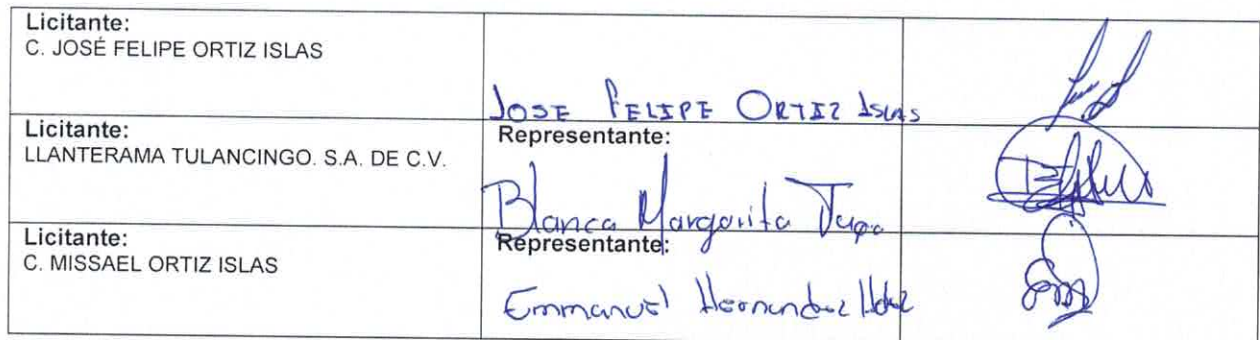 Licitante:
C. JOSÉ FELIPE ORTIZ ISLAS
JOSE FELIPE ORTIZ ISLAS
Licitante:
LLANTERAMA TULANCINGO. S.A. DE C.V.
Representante:
Blanca Margarita
Licitante:
C. MISSAEL ORTIZ ISLAS
Representante:
Emmanuel Hernandez Hdez